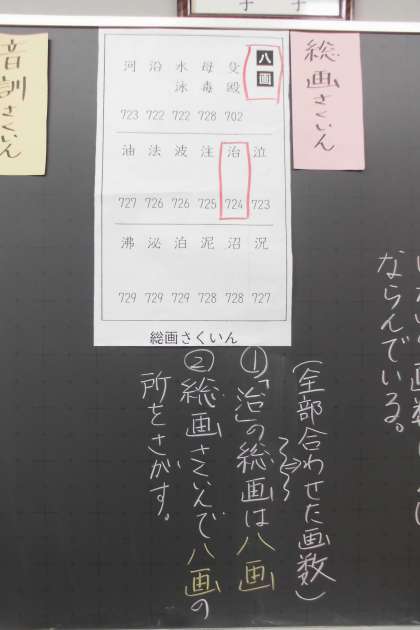 ならんでいる。
総画さくいん
八画
殳
702
母
毒
728
水
泳
722
沿
722
河
723
泣
723
治
724
注
725
波
726
法
726
油
727
況
727
沼
728
泥
728
泊
729
泌
729
沸
729
総画さくいん
(全部合わせた画数)
①「治」の総画は八画
②総画さくいんで八画の
所をさがす。
音訓さくいん